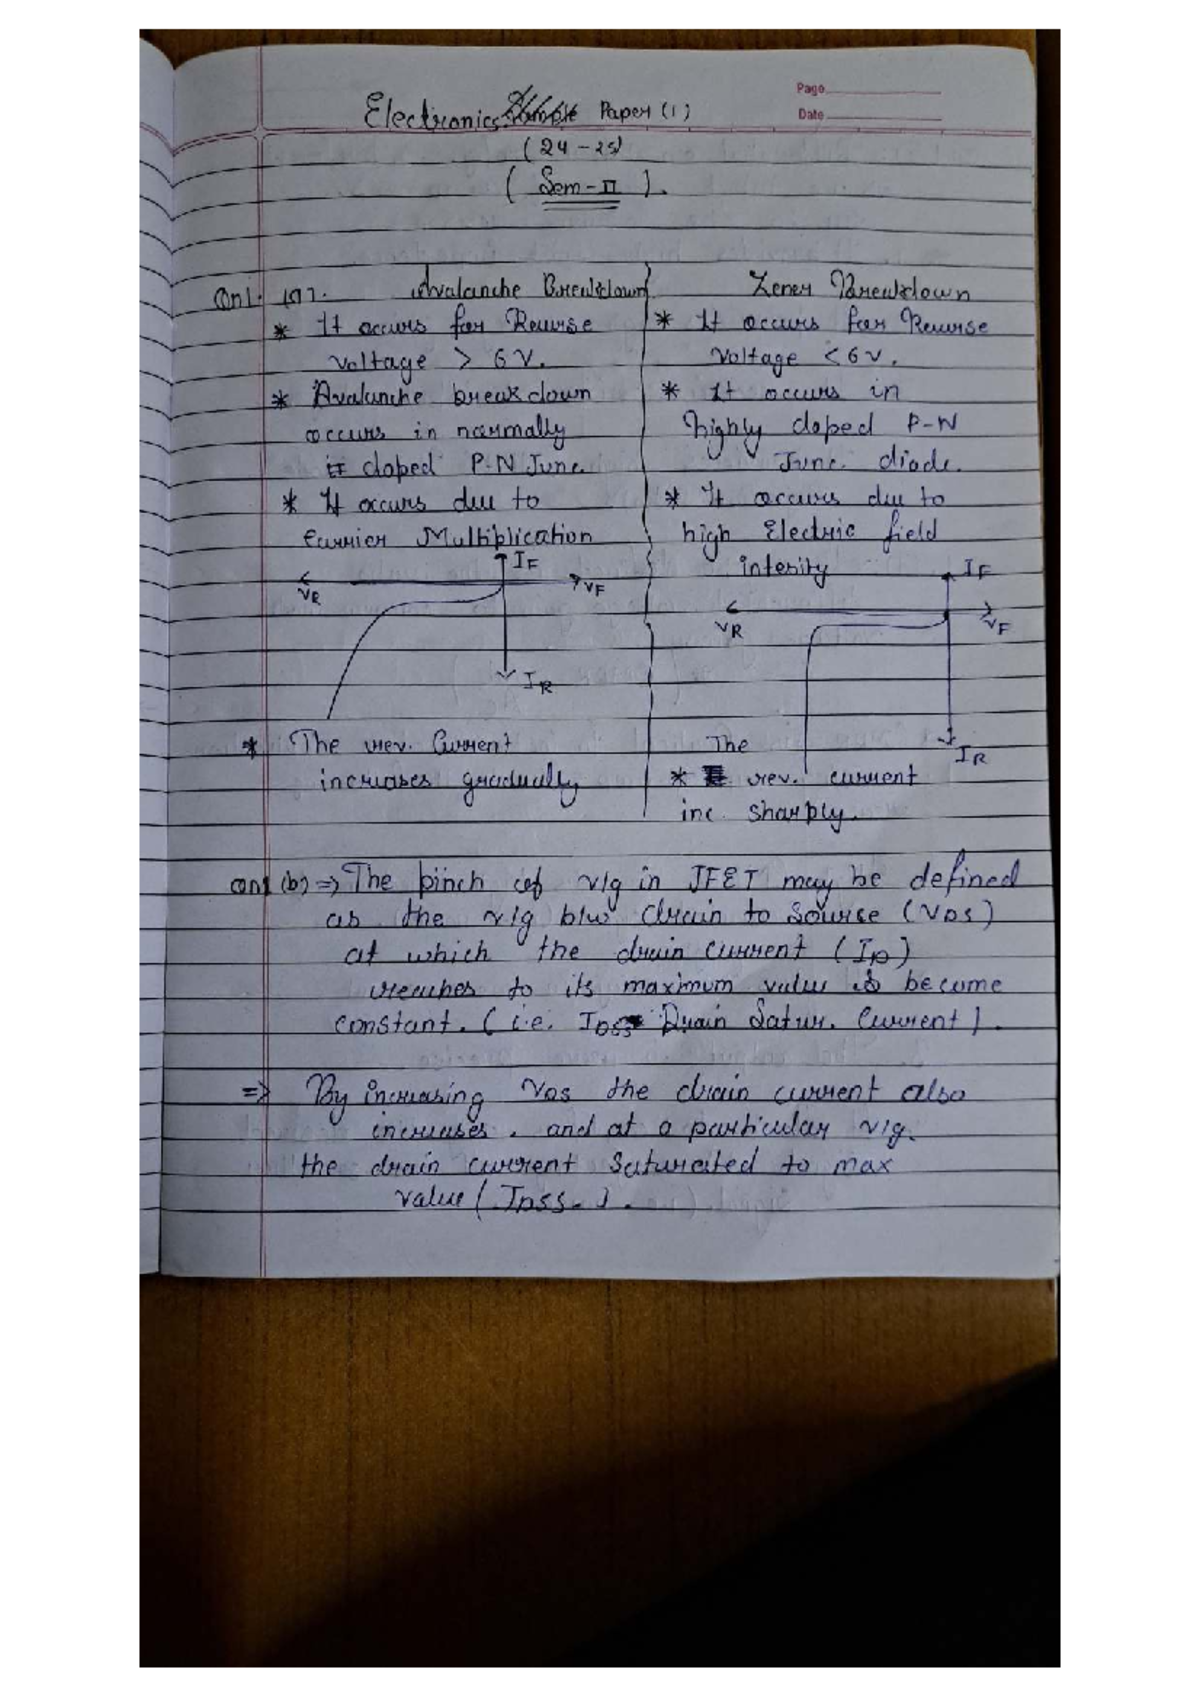 Page
Date
Electronics Paper (1)
(24-25)
(Sem-II).
Qn1. (a). Avalanche Breakdown
* It occurs for Reverse
voltage > 6V.
* Avalanche breakdown
occurs in normally
doped P-N Junc.
* It occurs due to
Carrier Multiplication
IF
VR
VF
IR
* The rev. Current
increases gradually
Zener Breakdown
* It occurs for Reverse
Voltage < 6v.
* It occurs in
highly doped P-N
Junc. diode.
* It occurs due to
high Electric field
intesity
IF
VR
VF
IR
The
* rev. current
inc. sharply.
Qn1 (b) => The pinch off v/g in JFET may be defined
as the v/g b/w drain to source (VDS)
at which the drain current (ID)
reaches to its maximum value is become
constant. (i.e. IDSS - Drain Satur. Current).
=> By increasing VDS the drain current also
increases. and at a particular v/g.
the drain current saturated to max
value (IDSS.).